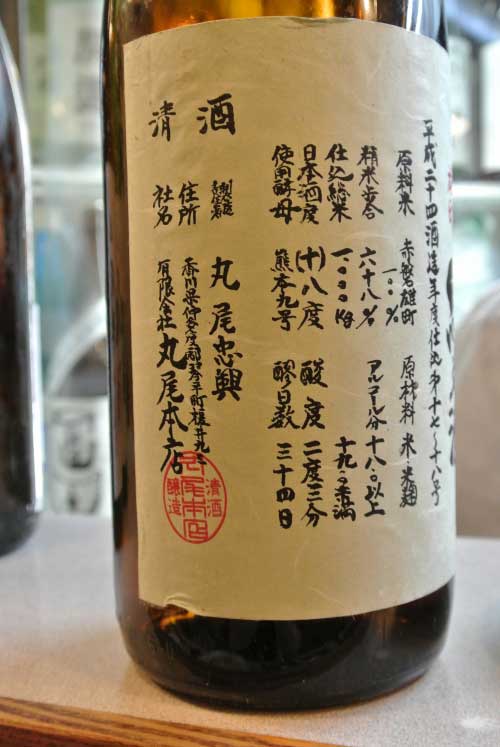 平成二十四酒造年度仕込第十七〜十八号
原料米 赤磐雄町 一〇〇% 原材料 米・米麹
精米歩合 六十八% アルコール分 十八〇以上
仕込総米 一〇〇〇kg 十九〇未満
日本酒度 (十)八度 酸度 二度三分
使用酵母 熊本九号 醪日数 三十四日
清酒
丸尾忠興
住所 香川県仲多度郡琴平町榎井九三
社名 有限会社丸尾本店
清酒
丸尾本店
醸造